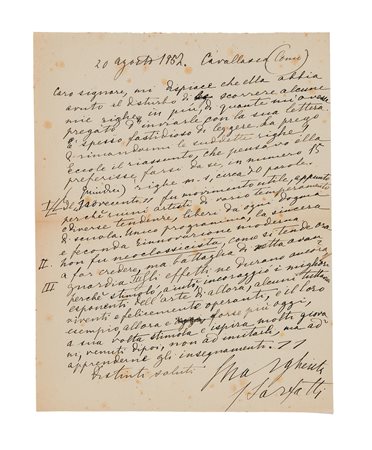 20 agosto 1952. Cavallasca (Como)
Caro signore, mi dispiace ch'ella abbia
avuto il disturbo di scorrere alcune
mie righe in più, di quante mi avesse
pregato d'inviarle con la sua lettera
È spesso fastidioso di leggere. La prego
di rimandarmi le suddette righe
Eccole il riassunto, che pensavo ella
preferisse farsi da sé, in numero 15
(quindici) righe m. s. circa 10 parole.
I/ Il "Novecento" fu movimento utile, appunto
perchè riunì artisti di vario temperamento
e diverse tendenze, liberi da ogni dogma
di scuola. Unico programma, la sincera
e feconda rinnovazione moderna
II. non fu neoclassicista, come si tende ora
a far credere, ma battaglia di avan-
guardia
III Gli effetti ne durano ancora
perchè stimolò, aiutò, incoraggiò i migliori
esponenti dell'arte di allora, alcuni tuttora
viventi e felicemente operanti, e il loro
esempio, allora e forse più oggi,
a sua volta stimola e ispira molti giova
ni, venuti dopo, non ad imitarli, ma ad
apprenderne gli insegnamenti.
Distinti saluti
Margherita
Sarfatti